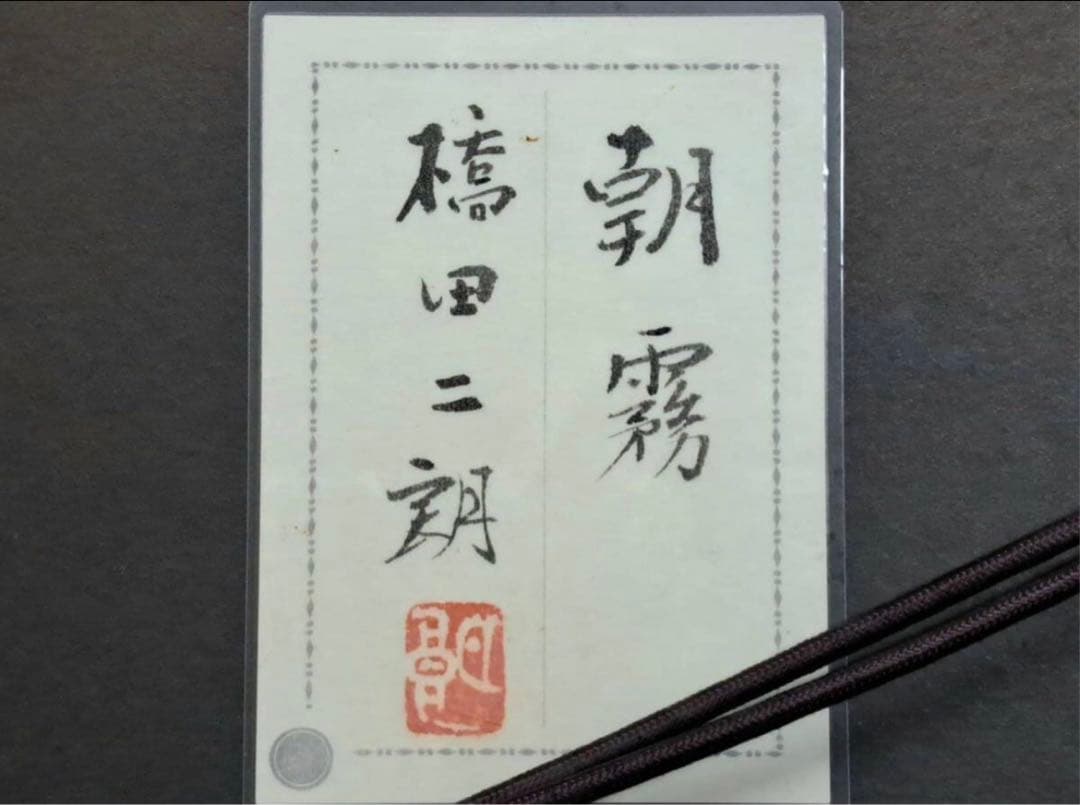 朝霧
橋田二朗